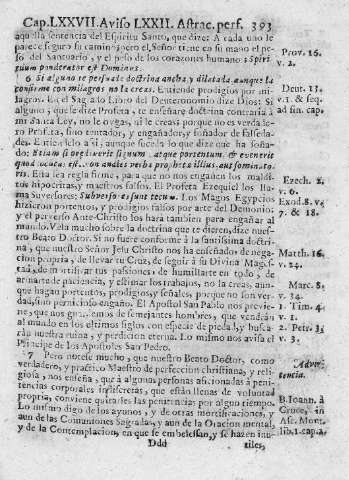 Cap. LXXVII. Aviso LXXII. Astrac. perf. 393
aquella sentencia del Espiritu Santo, que dize: A cada uno le
parece seguro su camino; pero el Señor tiene en su mano el pe-
so del Santuario, y el peso de los corazones humanos: Spiri-
tuum ponderator est Dominus.
Prov. 16.
v. 2.
6. Si alguno te persuade doctrina ancha, y dilatada, aunque la
confirme con milagros no la creas. Entiende prodigios por mi-
lagros. En el Sagrado Libro del Deuteronomio dize Dios: Si
alguno, que se dize Profeta, te enseñare doctrina contraria à
mi Santa Ley, no le oygas, ni le creas porque no es verdade-
ro Profeta, sino tentador, y engañador, y soñador de falseda-
des. Entiendelo a si, aunque suceda lo que dize que ha soña-
do:
Deut. 13.
v. 1. & seq.
ad fin. cap.
Esta sea regla firme, para que no nos engañen los maldi-
tos hipocritas, y maestros falsos. El Profeta Ezequiel los lla-
ma Suversores: Subversores tecum. Los Magos Egypcios
hizieron portentos, y prodigios falsos por arte del Demonio;
y el perverso Ante-Christo los harà tambien para engañar al
mundo. Vela mucho sobre la doctrina que te dieren, dize nues-
tro Beato Doctor. Si no fuere conforme à la santissima doctri-
na, que nuestro Señor Jesu Christo nos ha enseñado de nega-
cion propria, de llevar tu Cruz, de seguir à su Divina Mages-
tad, de mortificar tus passiones, de humillarte en todo, de
armarte de paciencia, y estimar los trabajos, no la creas, aun-
que hagan portentos, prodigios, y señales, porque no son ver-
dad, sino pernicioso engaño. El Apostol San Pablo nos previe-
ne, que nos guardemos de semejantes hombres, que vendràn
al mundo en los ultimos siglos con especie de piedad, y busca-
ràn nuestra ruina, y perdicion eterna. Lo mismo nos avisa el
Principe de los Apostoles San Pedro.
Ezech. 2.
v. 6.
Exod. 8. v.
7. & 18.
Matth. 16.
v. 24.
Marc. 8.
v. 34.
1 Tim. 4.
v. 1.
2 Petr. 3.
v. 3.
7 Pero notese mucho, que nuestro Beato Doctor, como
verdadero, y practico Maestro de perfeccion christiana, y reli-
giosa, nos enseña, que à algunas personas aficionadas à peni-
tencias corporales indiscretas, que estàn llenas de voluntad
propria, conviene quitarles las penitencias por algun tiempo.
Lo mismo digo de los ayunos, y de otras mortificaciones, y
aun de las Comuniones Sagradas, y aun de la Oracion mental,
y de la Contemplacion, en que se embelesan, y se hazen inu-
Adver-
tencia.
B. Ioann. à
Cruce, in
Asc. Mont.
lib. 1. cap. 2.
Ddd
tiles,